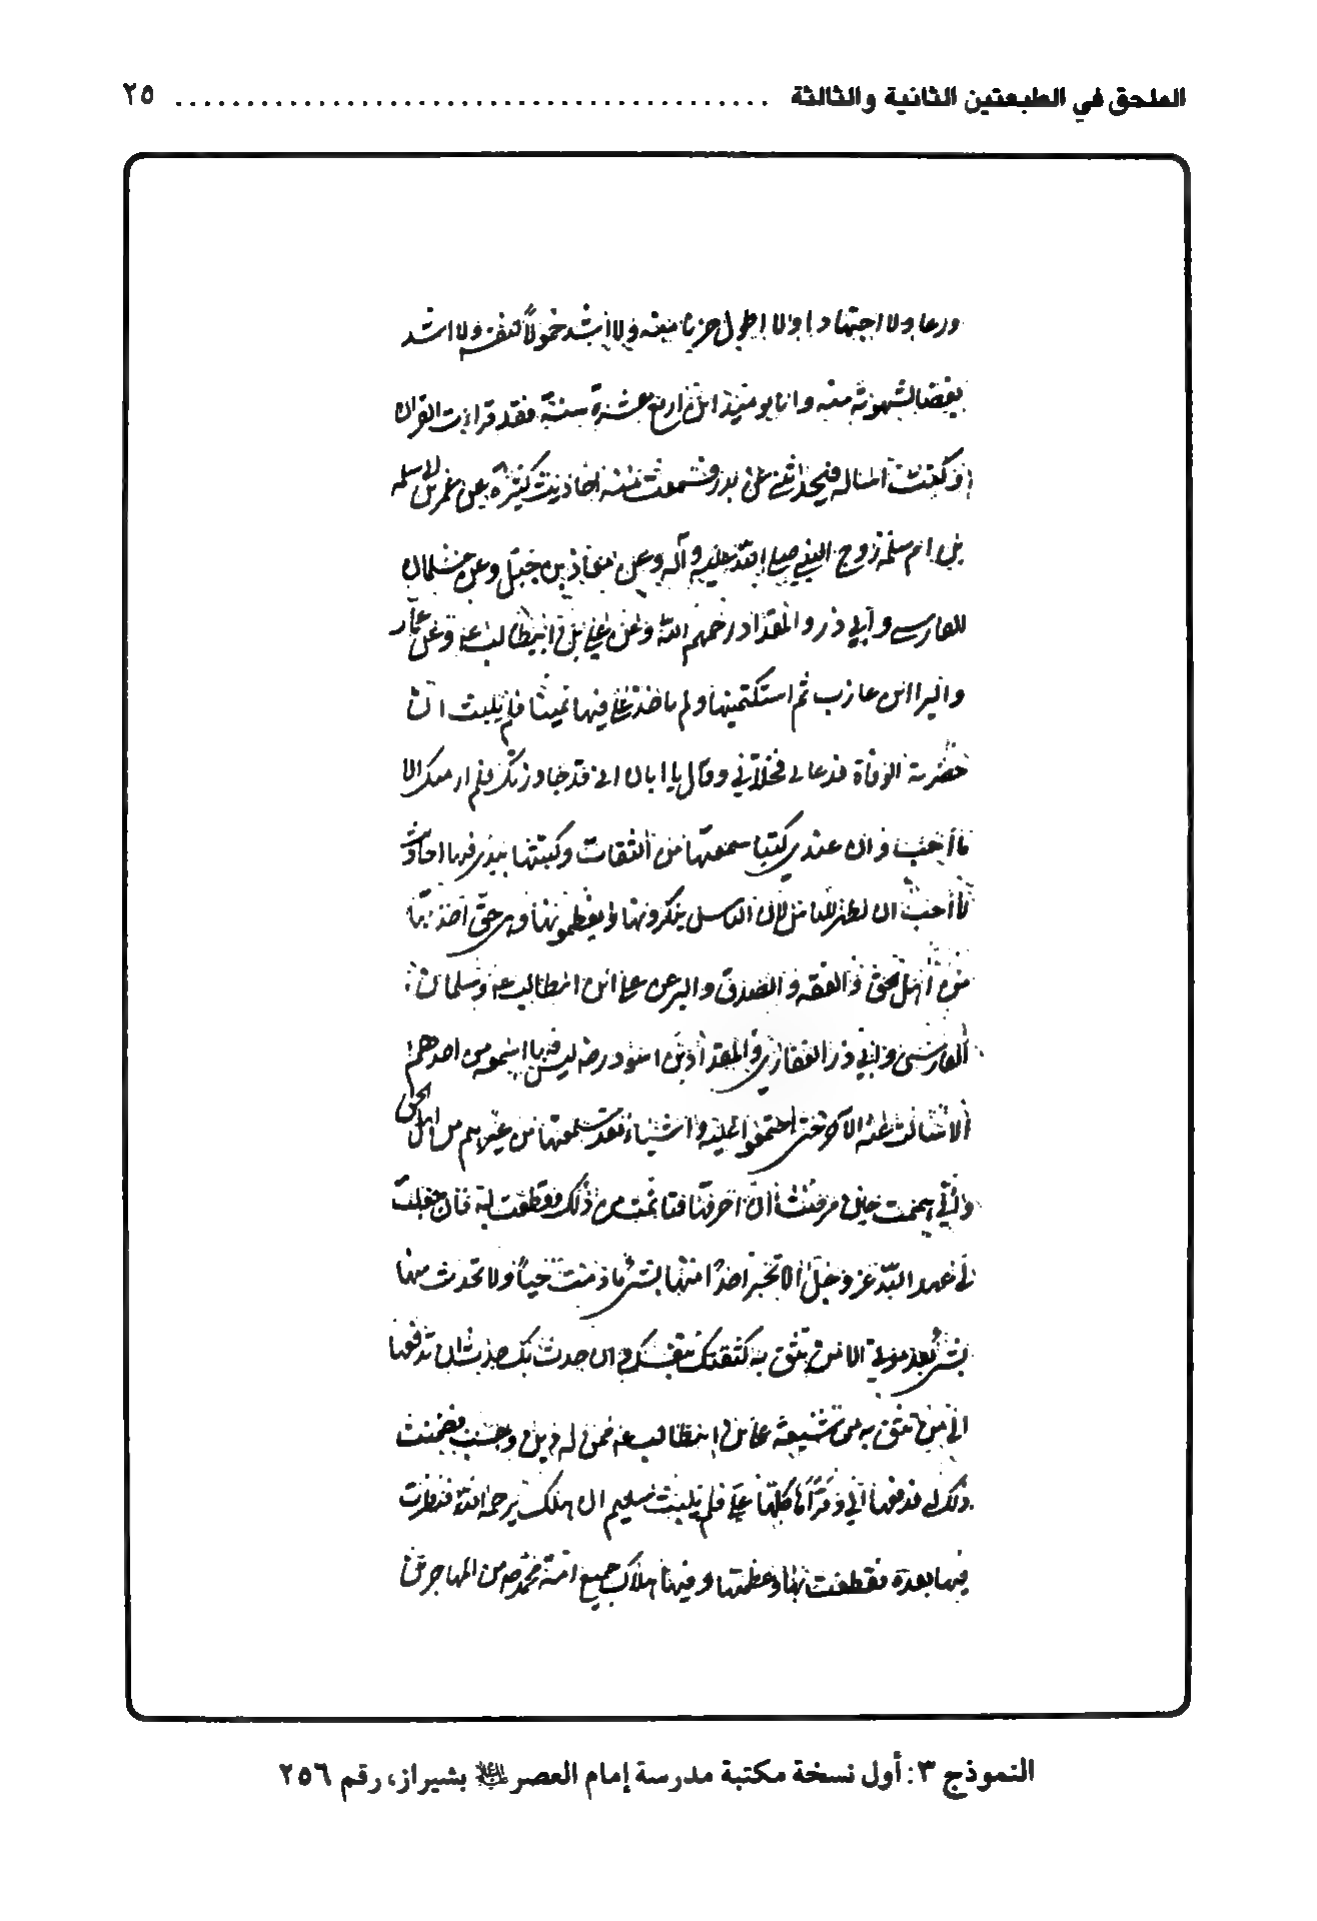 الملحق في الطبعتين الثانية والثالثة ........................................ ٢٥
ورعا ولا اجتهادا ولا اطول حزنا منه ولا اشد خمولا لنفسه ولا اشد
بغضا لشهوته منه وانا يومئذ ابن اربع عشرة سنة فقد قرات القران
وكنت اساله فيحدثني عن بدر فسمعت منه احاديث كثيرة عن عمر بن ابي سلمه
بن ام سلمة زوج النبي صلى الله عليه وآله وعن معاذ بن جبل وعن سلمان
الفارسي وأبي ذر والمقداد رحمهم الله وعن علي بن ابيطالب ع وعن عمار
والبراابن عازب ثم استكتمنيها ولم ياخذ علي فيها يمينا فلم يلبث ان
حضرته الوفاة فدعاني فخلا بي وقال يا ابان اني قد جاورتك فلم ار منك الا
ما أحب وان عندي كتبا سمعتها من الثقات وكتبتها بيدي فيها احاديث
لا أحب ان تظهر للناس لان الناس ينكرونها ويعظمونها وهي حق اخذتها
من أهل الحق والفقه والصدق والبر عن علي ابن ابيطالب ع وسلمان
الفارسي وابي ذر الغفاري والمقداد بن اسود رضه ليس فيها اسمعه من احدهم
الا سالت عنه الآخر حتى اجتمعوا عليه واشياء بعد سمعتها من غيرهم من اهل الحق
واني هممت حين مرضت أن احرقها فتاثمت من ذلك وقطعت به فان جعلت
لي عهد الله عز وجل الا تخبر احدا منها بشئ ما دمت حيا ولا تحدث منها
بشئ بعد موتي الا من تثق به كثقتك بنفسك وان حدث بك حدث ان تدفعها
الى من تثق به من شيعة علي بن ابيطالب ع ممن له دين وحسب فضمنت
ذلك له فدفعها الي وقرأها كلها علي فلم يلبث سليم ان هلك يرحمه الله فنظرت
فيها بعده فقطعت بها وعظمتها وفيها هلاك جميع امة محمد ص من المهاجرين
النموذج ٣: أول نسخة مكتبة مدرسة إمام العصر عليه السلام بشيراز، رقم ٢٥٦